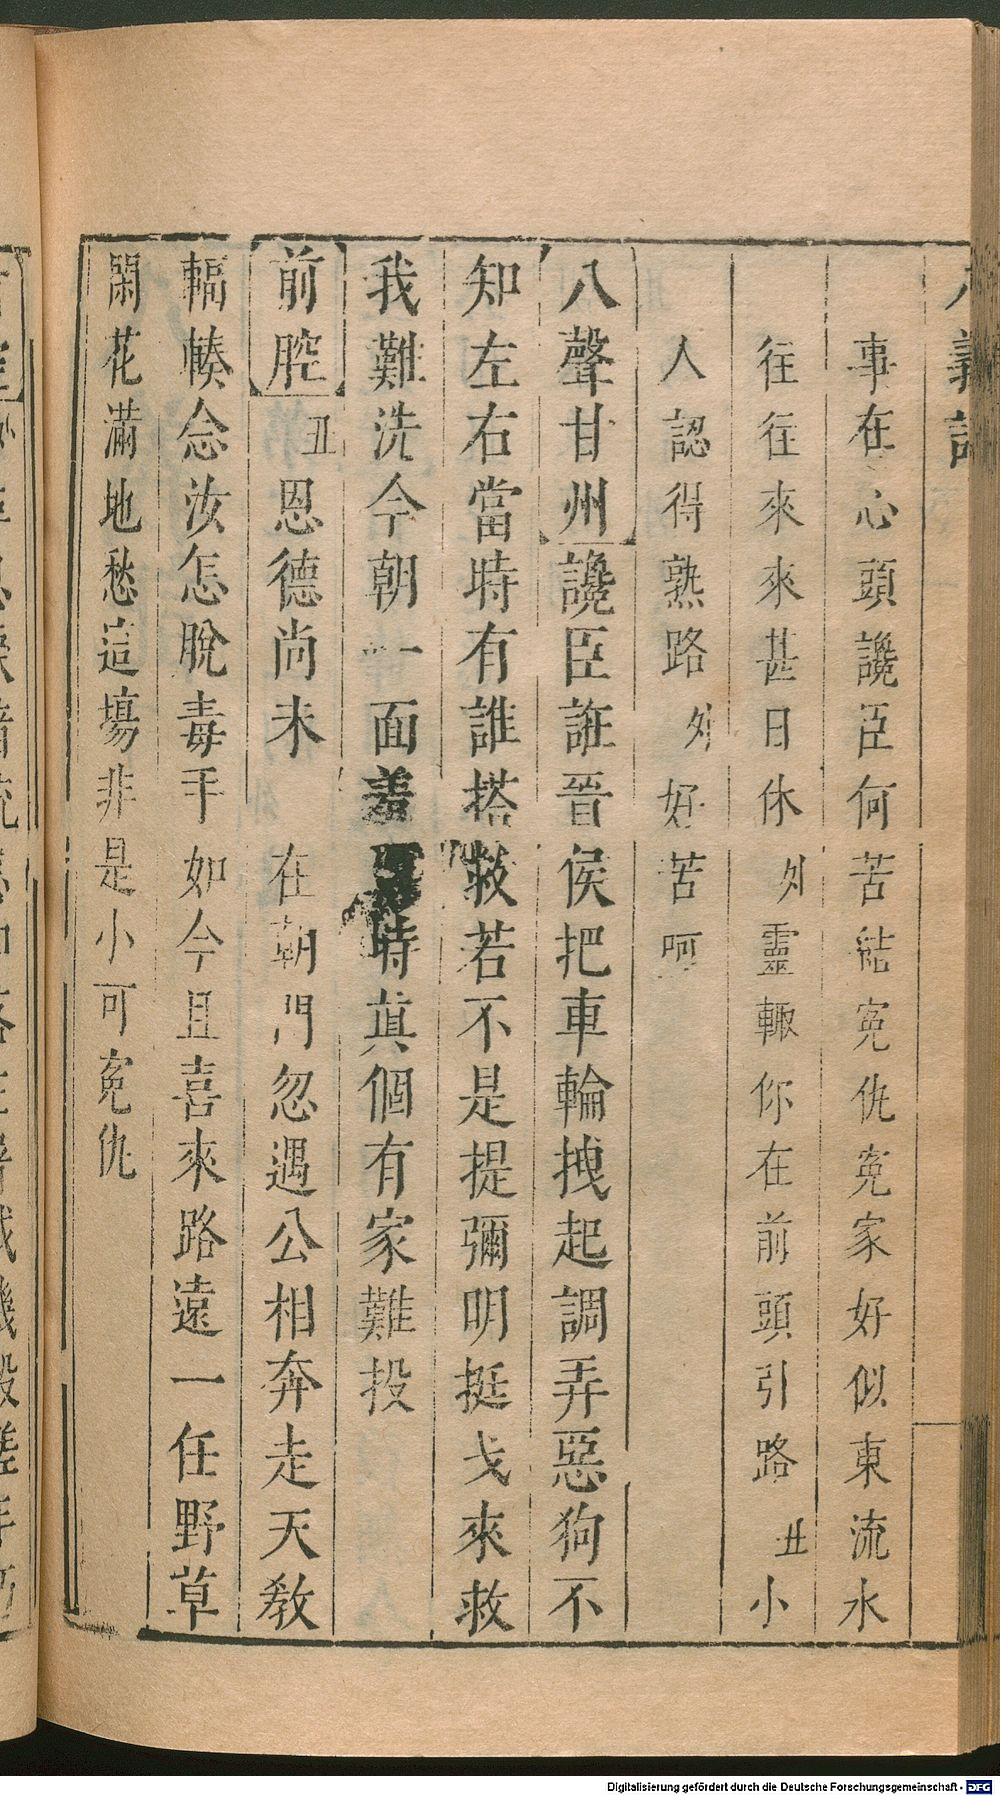 八義記
事在心頭讒臣何苦結寃仇寃家好似東流水
往往來來甚日休 外 靈輙你在前頭引路 丑 小
人認得熟路 外 好苦呵
八聲甘州 讒臣誑晉侯把車輪拽起調弄惡狗不
知左右當時有誰搭救若不是提彌明挺戈來救
我難洗今朝一面羞 時眞個有家難投
前腔 丑 恩德尚未 在朝門忽遇公相奔走天教
輻輳念汝怎脫毒手如今且喜來路遠一任野草
閑花滿地愁這場非是小可寃仇
Digitalisierung gefördert durch die Deutsche Forschungsgemeinschaft - DFG